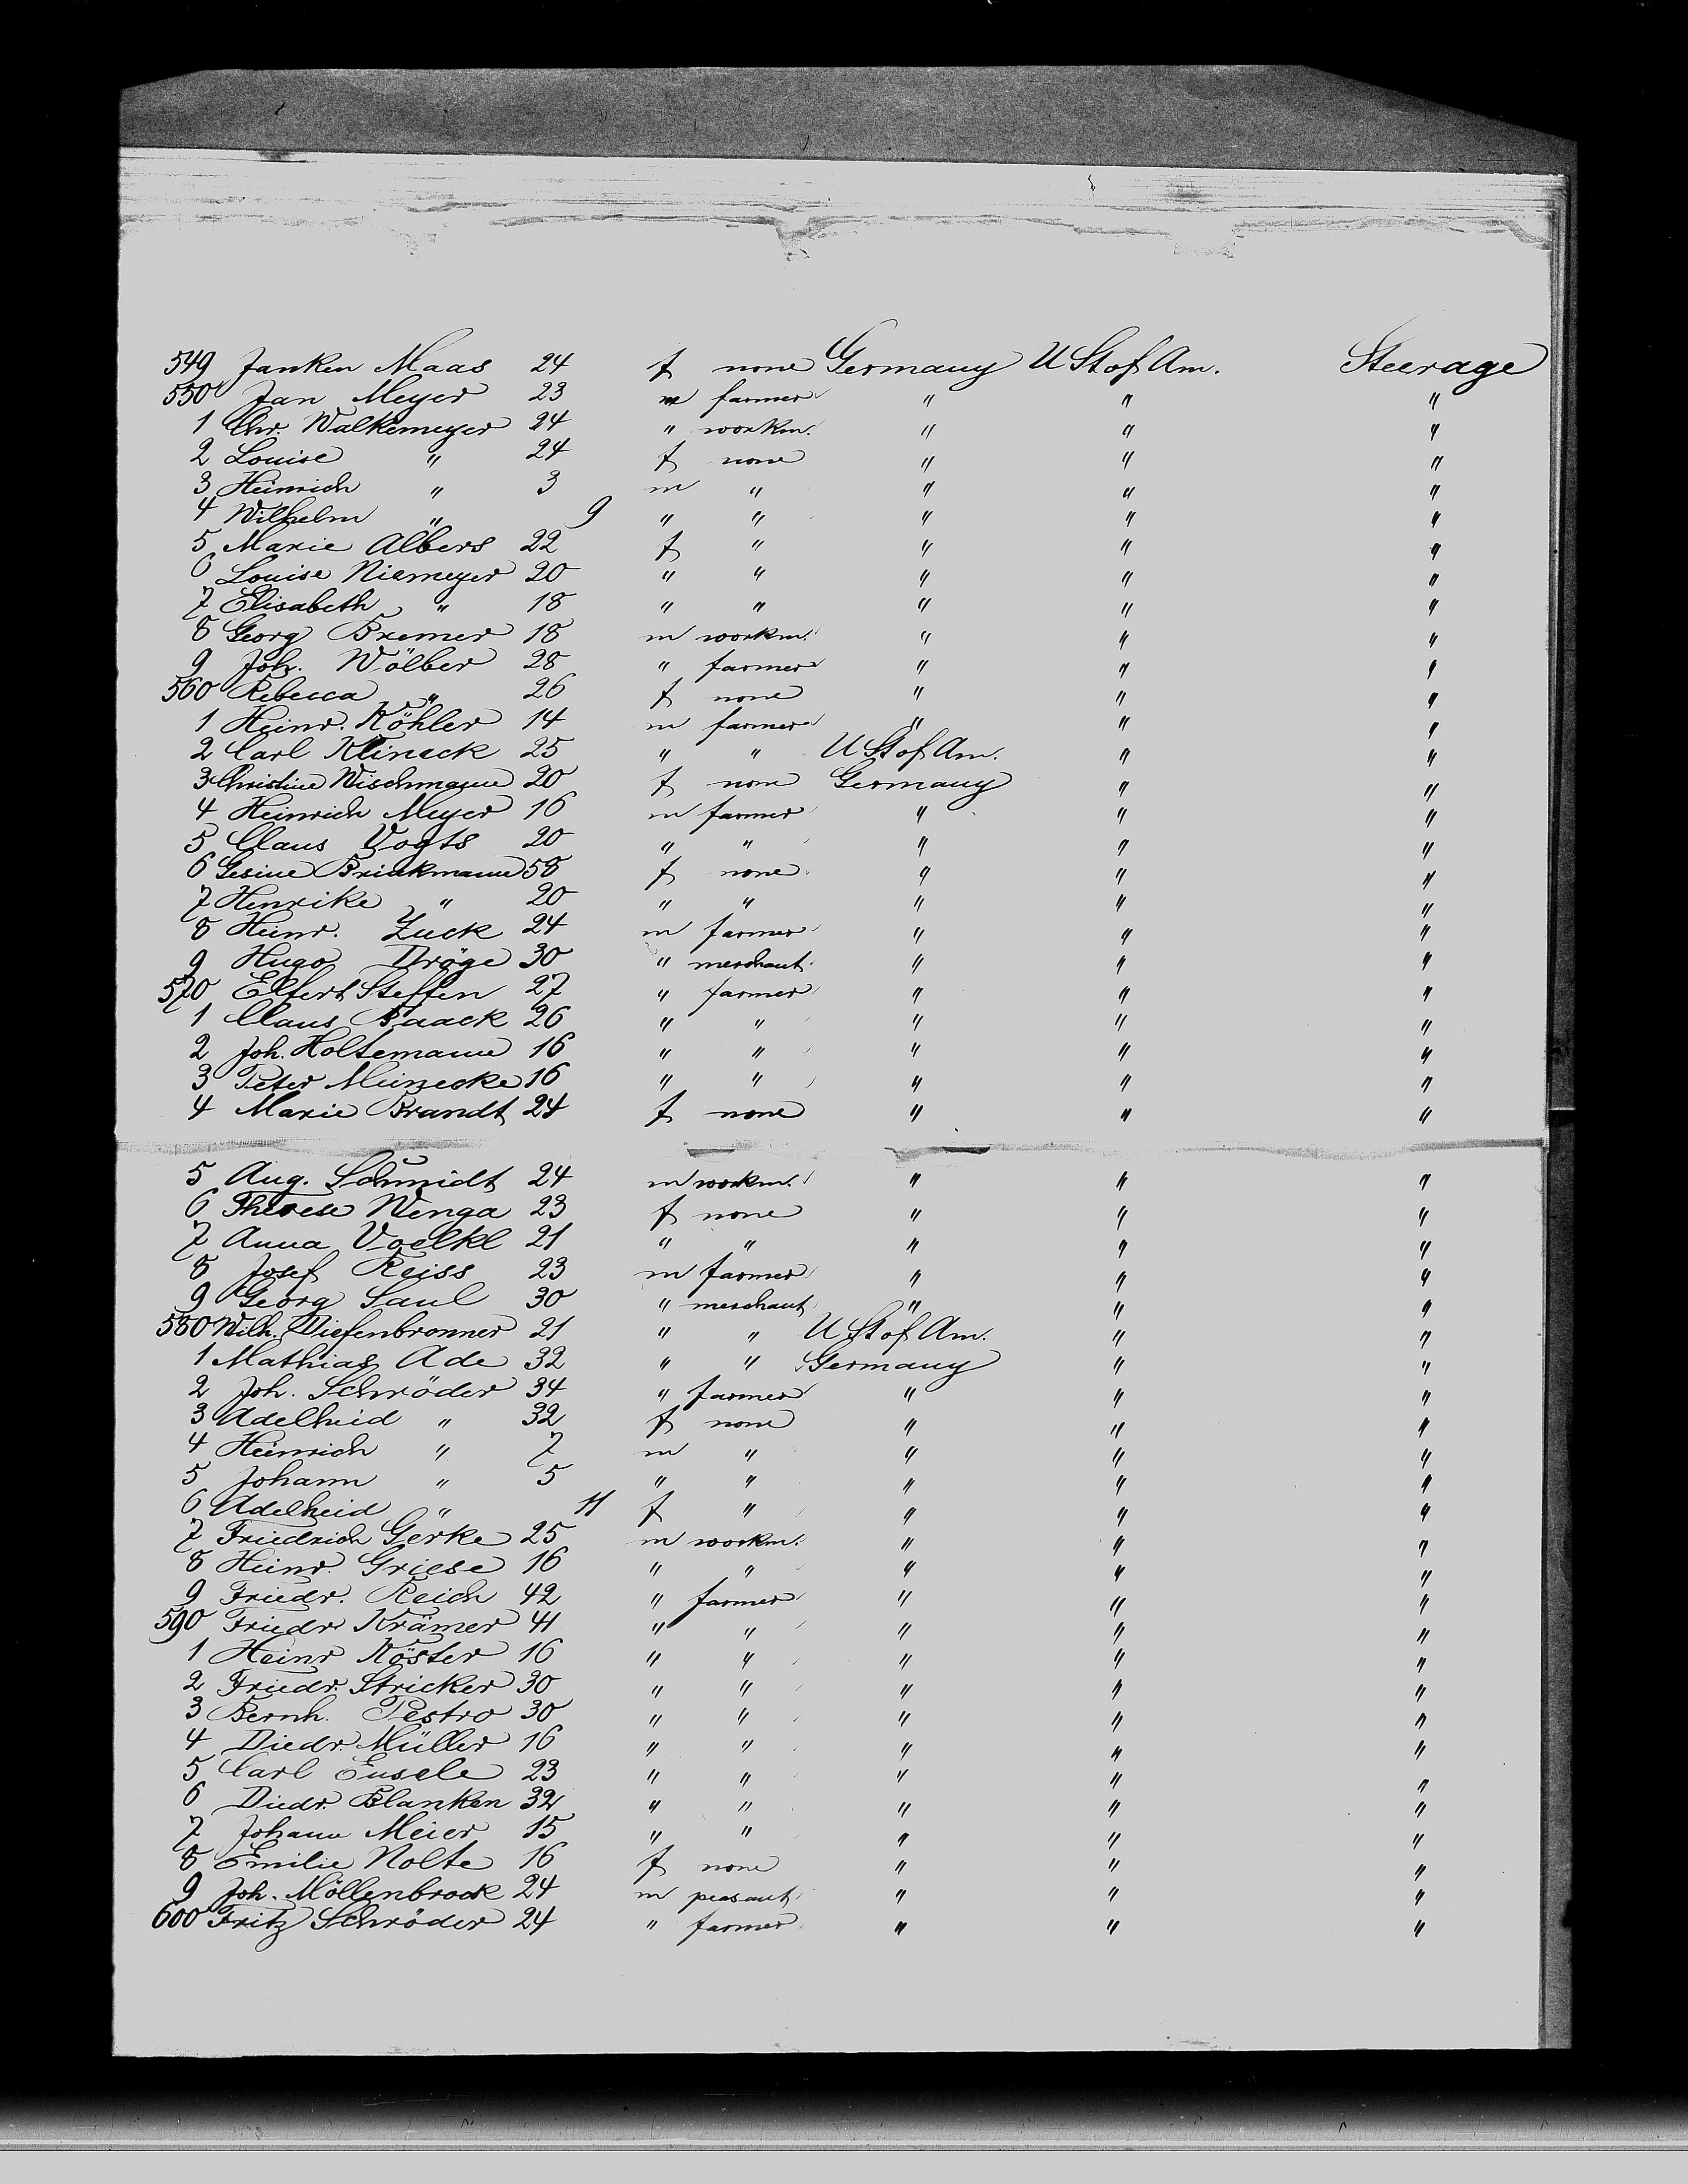 549 Janken Maas 24 f none Germany U St of Am. Steerage
550 Jan Meyer 23 m farmer " " "
1 Chr. Walkemeyer 24 " workm. " " "
2 Louise " 24 f none " " "
3 Heinrich " 3 m " " " "
4 Wilhelm " 9 " " " " "
5 Marie Albers 22 f " " " "
6 Louise Niemeyer 20 " " " " "
7 Elisabeth " 18 " " " " "
8 Georg Bremer 18 m workm. " " "
9 Joh. Wölber 28 " farmer " " "
560 Rebecca " 26 f none " " "
1 Heinr. Köhler 14 m farmer " " "
2 Carl Klineck 25 " " U St of Am. " "
3 Christine Wischmann 20 f none Germany " "
4 Heinrich Meyer 16 m farmer " " "
5 Claus Vogts 20 " " " " "
6 Gesine Brinkmann 58 f none " " "
7 Henrike " 20 " " " " "
8 Heinr. Zuck 24 m farmer " " "
9 Hugo Dröge 30 " merchant " " "
570 Elfert Steffen 27 " farmer " " "
1 Claus Baack 26 " " " " "
2 Joh. Holtemann 16 " " " " "
3 Peter Meinecke 16 " " " " "
4 Marie Brandt 24 f none " " "
5 Aug. Schmidt 24 m workm. " " "
6 Therese Wenga 23 f none " " "
7 Anna Voelkl 21 " " " " "
8 Josef Reiss 23 m farmer " " "
9 Georg Saul 30 " merchant " " "
580 Wilh. Diefenbronner 21 " " U St of Am. " "
1 Mathias Ade 32 " " Germany " "
2 Joh. Schröder 34 " farmer " " "
3 Adelheid " 32 f none " " "
4 Heinrich " 7 m " " " "
5 Johann " 5 " " " " "
6 Adelheid " 11 f " " " "
7 Friedrich Gerke 25 m workm. " " "
8 Heinr. Griese 16 " " " " "
9 Friedr. Reich 42 " farmer " " "
590 Friedr Krämer 41 " " " " "
1 Heinr Köster 16 " " " " "
2 Friedr. Stricker 30 " " " " "
3 Bernh. Pestro 30 " " " " "
4 Diedr. Müller 16 " " " " "
5 Carl Eusele 23 " " " " "
6 Diedr. Blanken 32 " " " " "
7 Johann Meier 15 " " " " "
8 Emilie Nolte 16 f none " " "
9 Joh. Möllenbrock 24 m peasant " " "
600 Fritz Schröder 24 " farmer " " "